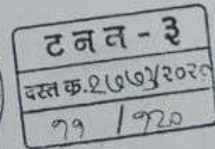 टनत - ३
दस्त क्र. २७७५/२०२०
११ / १२०